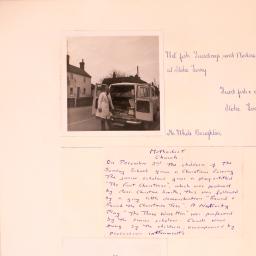 Wet fish Tuesdays and
at Stoke Ferry
Fried fish
Stoke
Mr. Wade
Methodist
Church
On December 3rd the children of the
Sunday School gave a Christmas Evening
The junior scholars gave a play entitled
"The First Christmas", which was produced
by Miss Christine Smith, this was followed
by a gay little demonstration "Round a
Round the Christmas Tree". A Nativity
Play "The Three Wise Men" was performed
by the senior scholars. Carols were
sung by the children, accompanied by
percussion instruments